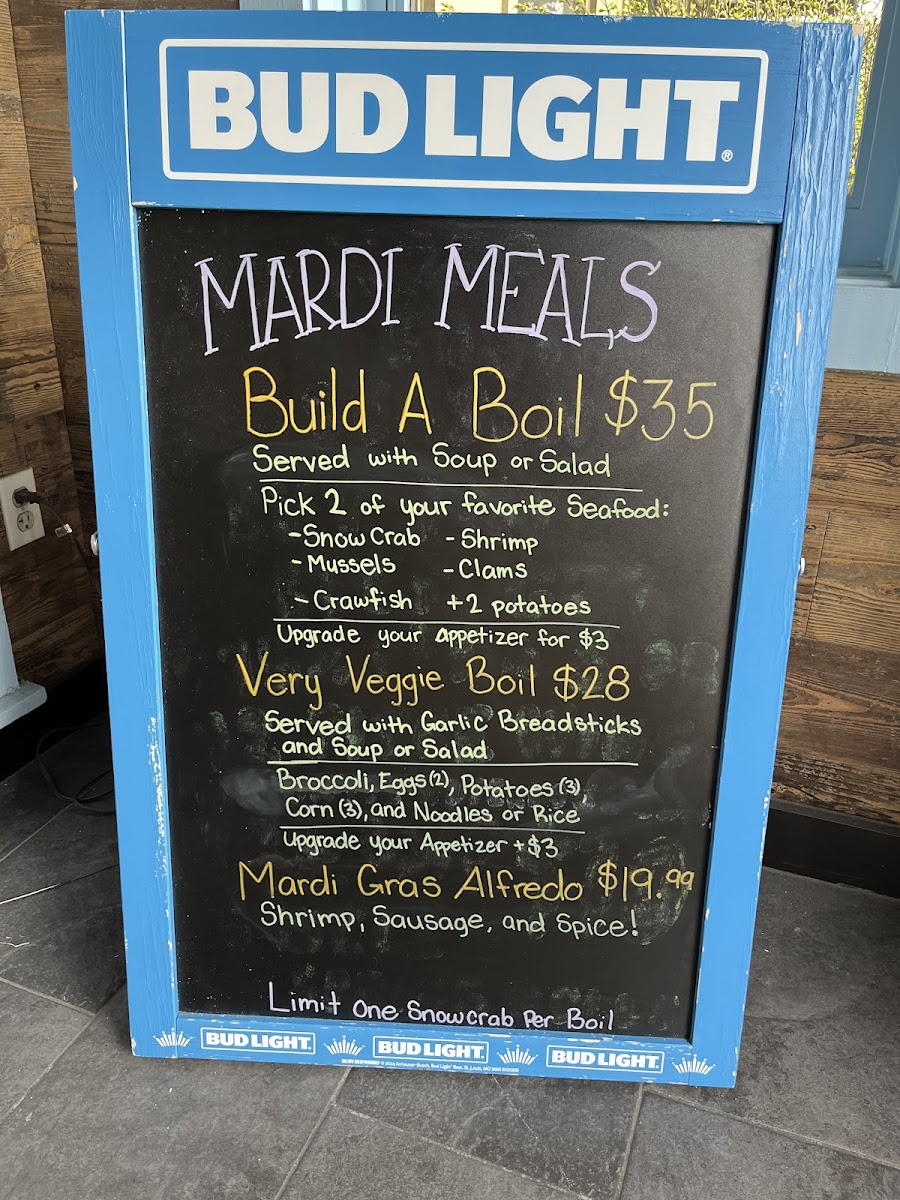 BUD LIGHT®
MARDI MEALS
Build A Boil $35
Served with Soup or Salad
Pick 2 of your favorite Seafood:
- Snow Crab - Shrimp
- Mussels - Clams
- Crawfish + 2 potatoes
Upgrade your Appetizer for $3
Very Veggie Boil $28
Served with Garlic Breadsticks
and Soup or Salad
Broccoli, Eggs (2), Potatoes (3),
Corn (3), and Noodles or Rice
Upgrade your Appetizer + $3
Mardi Gras Alfredo $19.99
Shrimp, Sausage, and Spice!
Limit One Snowcrab Per Boil
BUD LIGHT. BUD LIGHT. BUD LIGHT.
ENJOY RESPONSIBLY © 2024 Anheuser-Busch, Bud Light® Beer, St. Louis, MO